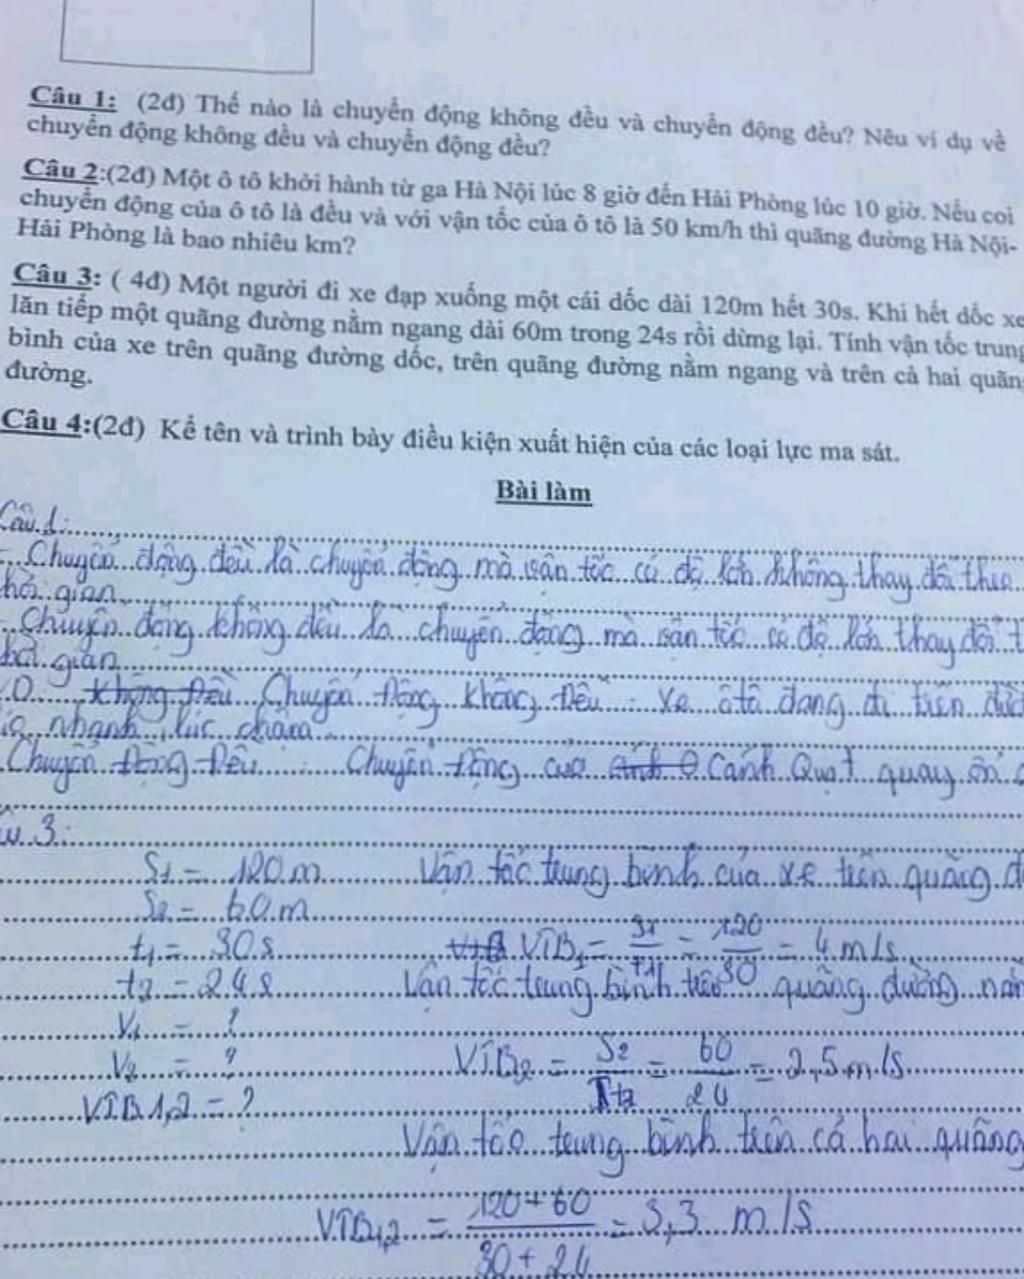 Câu 1: (2đ) Thế nào là chuyển động không đều và chuyển động đều? Nêu ví dụ về
chuyển động không đều và chuyển động đều?
Câu 2:(2đ) Một ô tô khởi hành từ ga Hà Nội lúc 8 giờ đến Hải Phòng lúc 10 giờ. Nếu coi
chuyển động của ô tô là đều và với vận tốc của ô tô là 50 km/h thì quãng đường Hà Nội-
Hải Phòng là bao nhiêu km?
Câu 3: ( 4đ) Một người đi xe đạp xuống một cái dốc dài 120m hết 30s. Khi hết dốc xe
lăn tiếp một quãng đường nằm ngang dài 60m trong 24s rồi dừng lại. Tính vận tốc trung
bình của xe trên quãng đường dốc, trên quãng đường nằm ngang và trên cả hai quãng
đường.
Câu 4:(2đ) Kể tên và trình bày điều kiện xuất hiện của các loại lực ma sát.
Bài làm
Câu 1:
- Chuyển động đều là chuyển động mà vận tốc có độ lớn không thay đổi theo
thời gian
- Chuyển động không đều là chuyển động mà vận tốc có độ lớn thay đổi t
hời gian
Chuyển động không đều : xe ôtô đang đi trên
nhanh, lúc chậm
Chuyển động đều : Chuyển động của Cánh Quạt quay ổn
u 3:
S1 = 120 m Vận tốc trung bình của xe trên quãng đ
S2 = 60 m
t1 = 30 s VTB1 = S1/t1 = 120/30 = 4 m/s
t2 = 24 s Vận tốc trung bình trên quãng đường nằm
V1 = ?
V2 = ? VTB2 = S2/t2 = 60/24 = 2,5 m/s
VTB1,2 = ?
Vận tốc trung bình trên cả hai quãng
VTB1,2 = 120 + 60 / 30 + 24 = 3,3 m/s